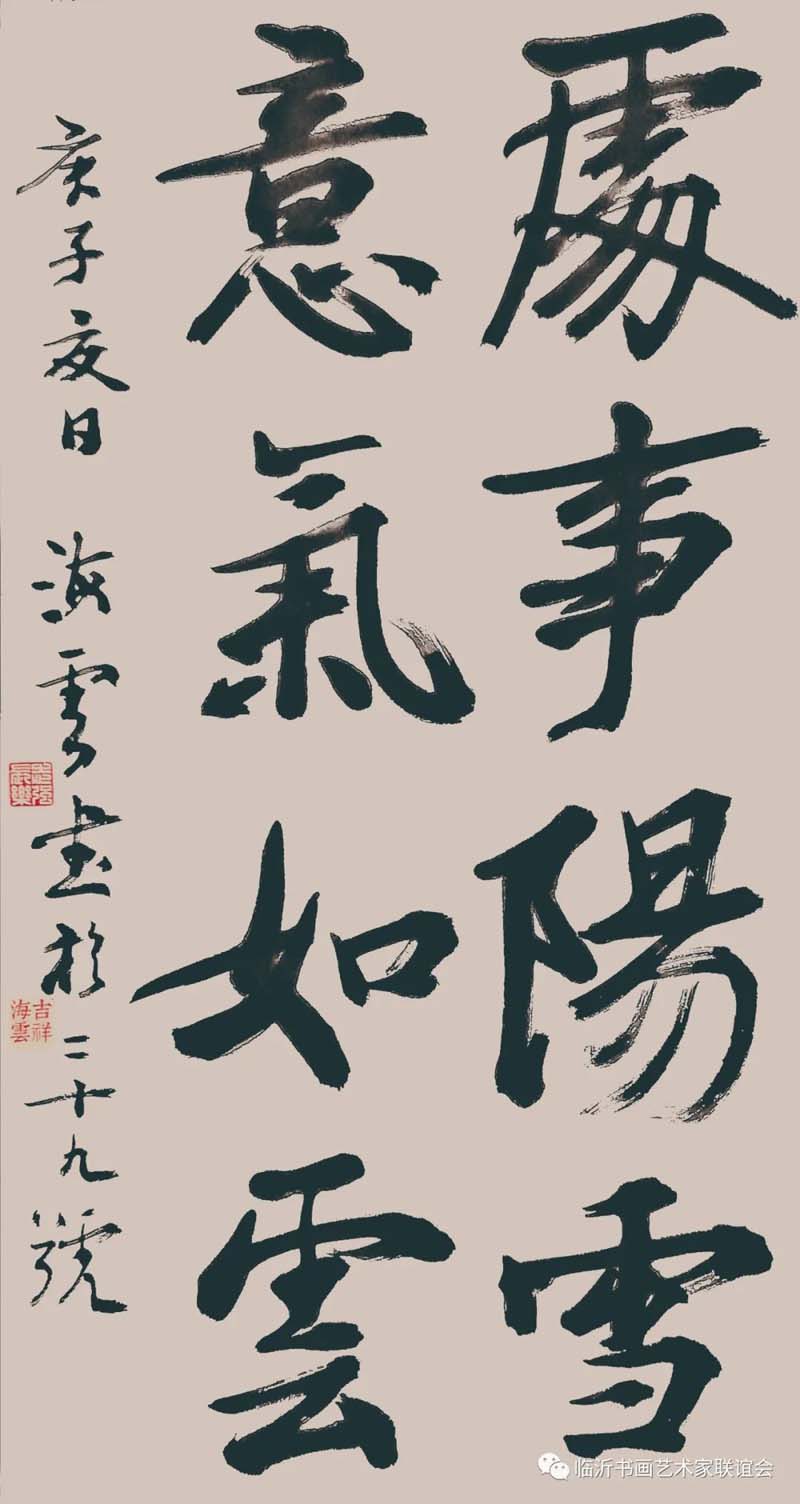 處事陽雪
意氣如雲
庚子夏日 海雲書於二十九號
吉祥海雲
临沂书画艺术家联谊会